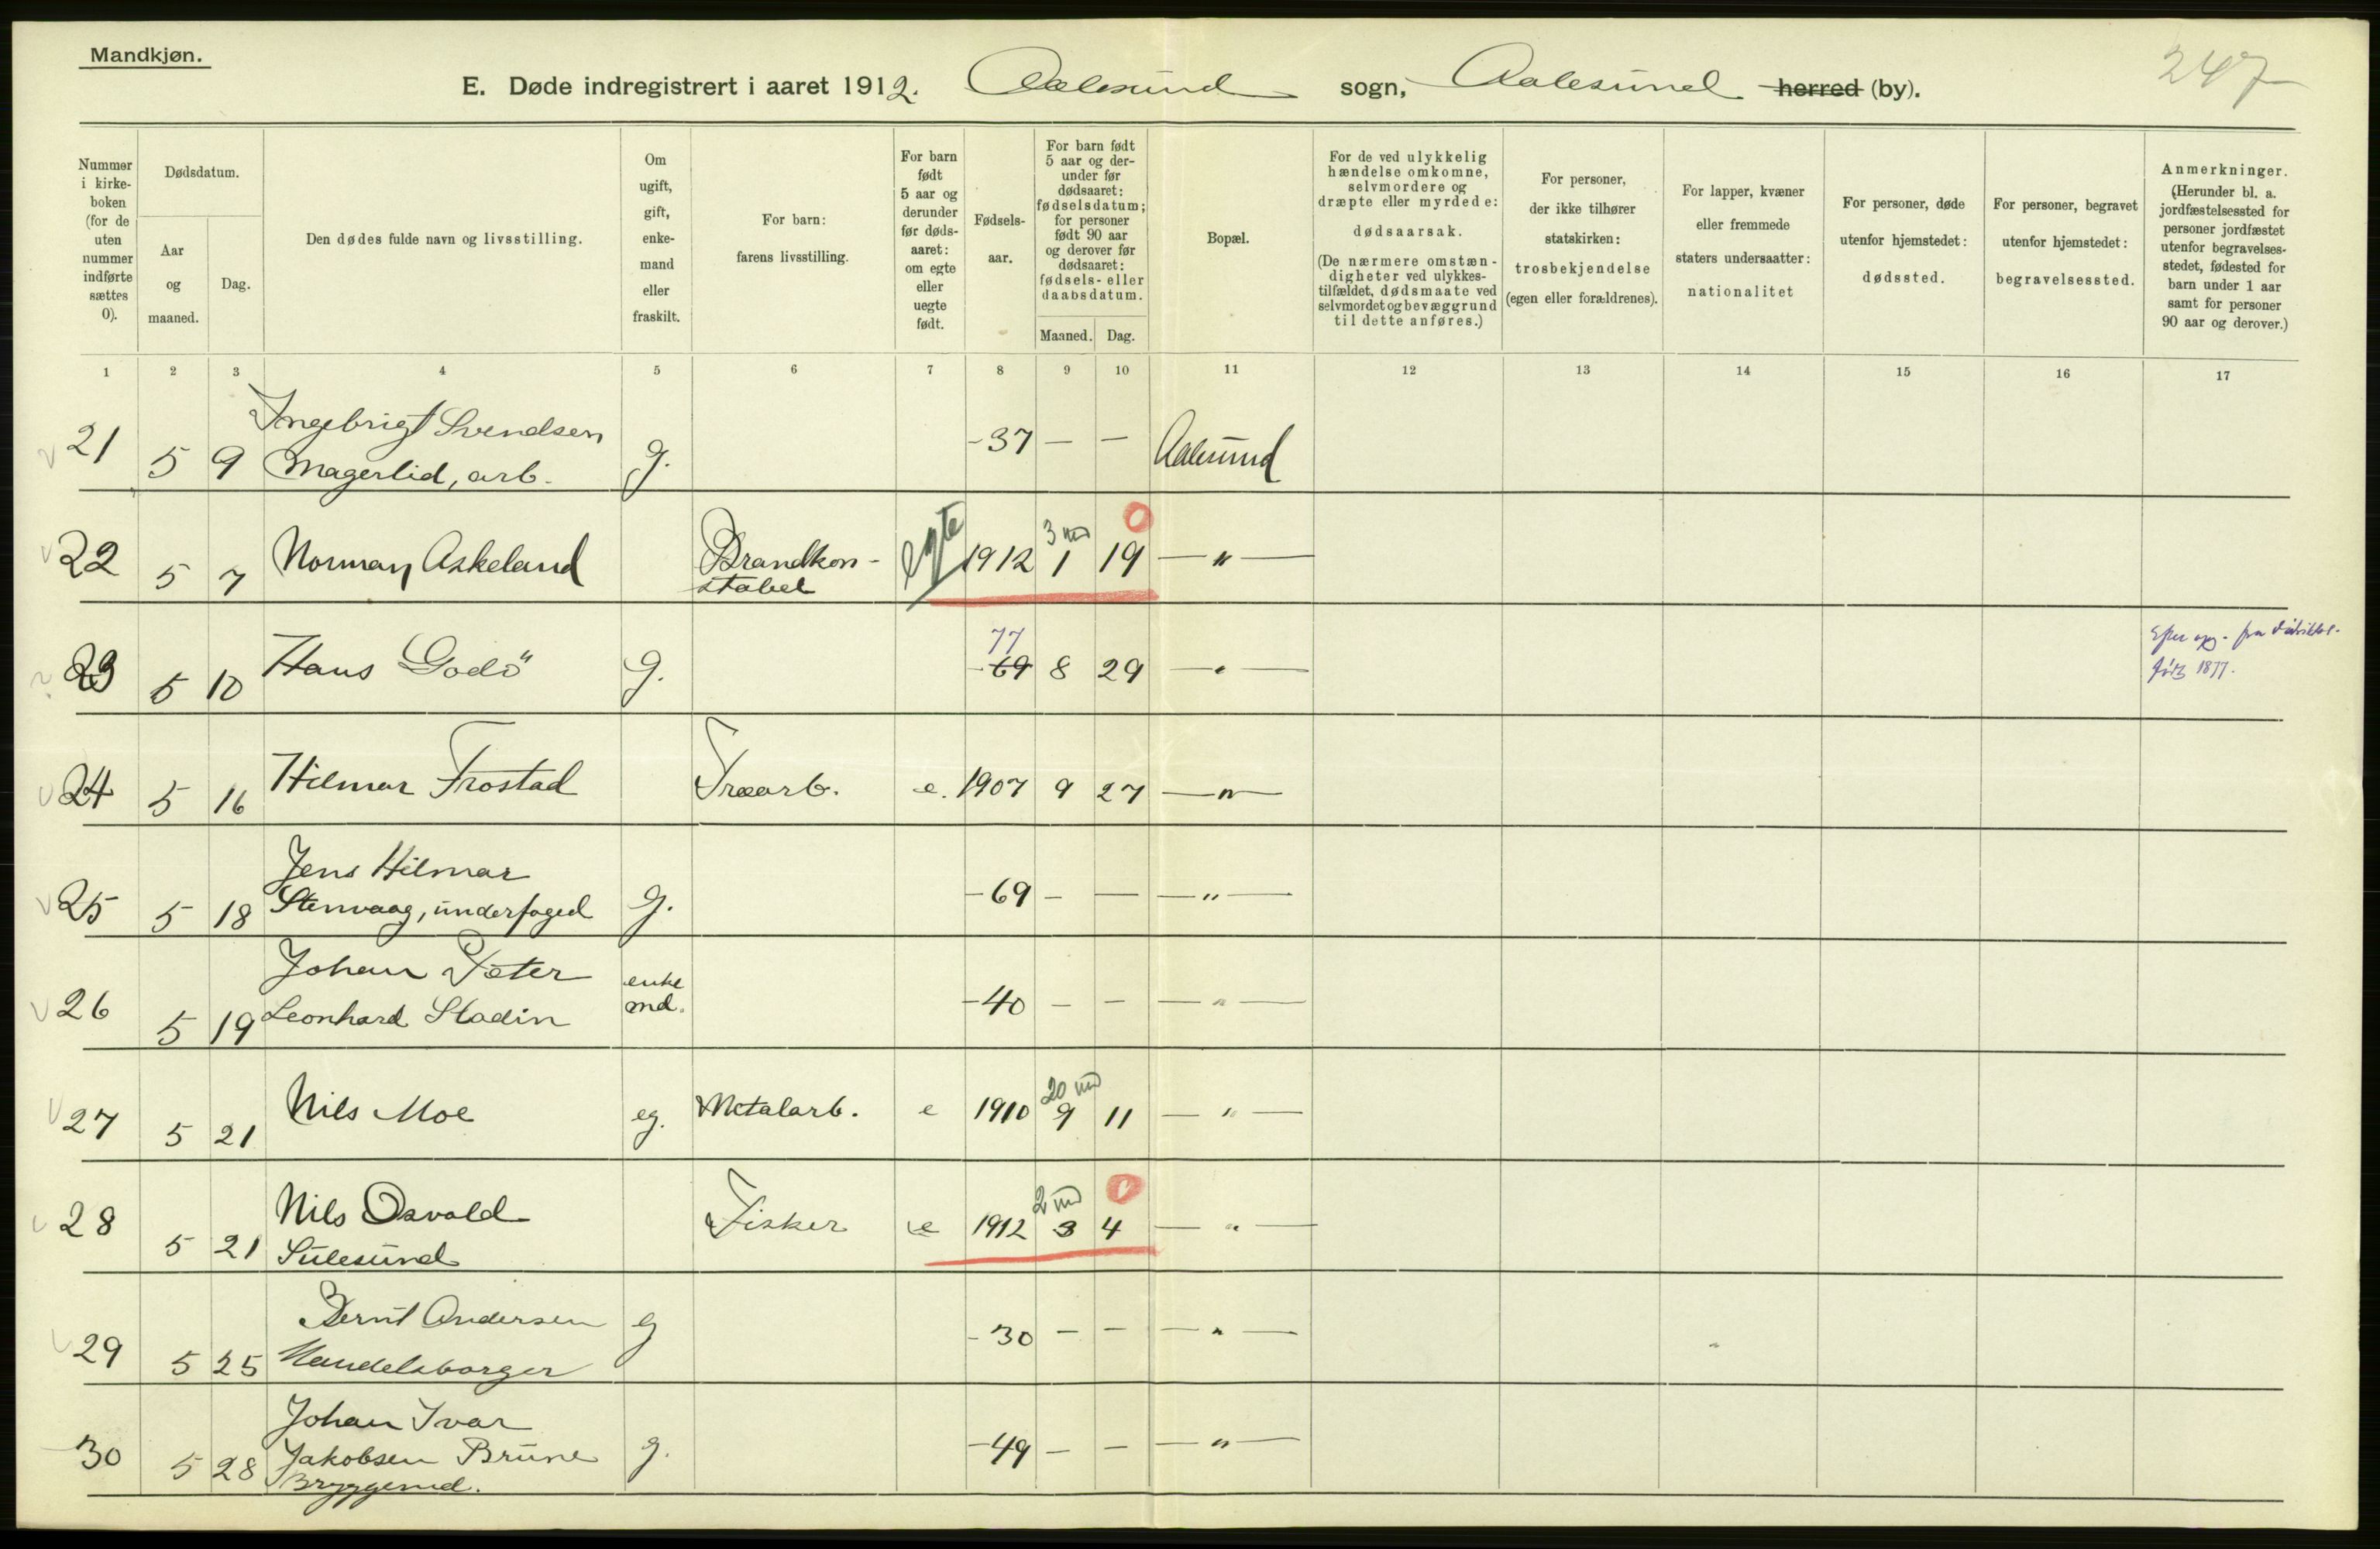 Mandkjøn.
E. Døde indregistrert i aaret 1912. Aalesund sogn, Aalesund herred (by).
247
Nummer i kirkeboken (for de uten nummer indførte sættes 0).
Dødsdatum.
Aar og maaned.
Dag.
Den dødes fulde navn og livsstilling.
Om ugift, gift, enkemand eller fraskilt.
For barn: farens livsstilling.
For barn født 5 aar og derunder før dødsaaret: om egte eller uegte født.
Fødselsaar.
For barn født 5 aar og derunder før dødsaaret: fødselsdatum; for personer født 90 aar og derover før dødsaaret: fødsels- eller daabsdatum.
Maaned. Dag.
Bopæl.
For de ved ulykkelig hændelse omkomne, selvmordere og dræpte eller myrdede: dødsaarsak. (De nærmere omstændigheter ved ulykkestilfældet, dødsmaate ved selvmordet og bevæggrund til dette anføres.)
For personer, der ikke tilhører statskirken: trosbekjendelse (egen eller forældrenes).
For lapper, kvæner eller fremmede staters undersaatter: nationalitet
For personer, døde utenfor hjemstedet: dødssted.
For personer, begravet utenfor hjemstedet: begravelsessted.
Anmerkninger. (Herunder bl. a. jordfæstelsessted for personer jordfæstet utenfor begravelsesstedet, fødested for barn under 1 aar samt for personer 90 aar og derover.)
1 2 3 4 5 6 7 8 9 10 11 12 13 14 15 16 17
21 5 9 Ingebrigt Svendsen
Magerlid, arb. g. -37 — — Aalesund
22 5 7 Norman Askeland Brandkon-
stabel egte 1912 3 md 1 19 0 — " —
23 5 10 Hans Godö g. 77 -69 8 29 — " —
Efter opg. fra
født 1877.
24 5 16 Hilmar Frostad Træarb. e. 1907 9 27 — " —
25 5 18 Jens Hilmar
Stenvaag, underfoged g. -69 — — — " —
26 5 19 Johan Peter
Leonhard Stadin enke
md. -40 — — — " —
27 5 21 Nils Moe eg. Metalarb. e 1910 20 md 9 11 — " —
28 5 21 Nils Osvald
Sulesund Fisker e 1912 2 md 3 4 0 — " —
29 5 25 Bernt Andersen
Handelsborger g -30 — — — " —
30 5 28 Johan Ivar
Jakobsen Brune
Bryggemd. g. -49 — — — " —